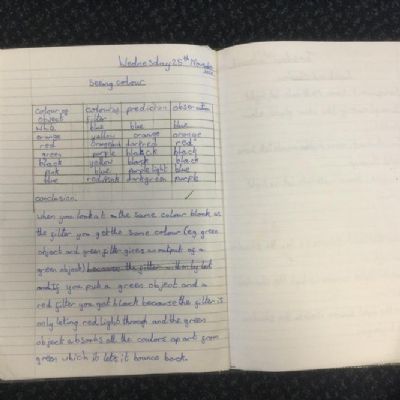 Wednesday 25th November
Seeing colour
colour of object colour of filter prediction observation
blue blue blue
orange yellow orange orange
red darkred red
green purple black black
black yellow black black
pink blue purple light blue
blue red/pink darkgreen purple
conclusion.
when you look at the same colour block as
the filter you get the same colour (eg green
object and green filter gives an output of a
green object) because the filter will only let
and if you put a green object and a
red filter you got black because the filter is
only leting red light through and the green
object absorbs all the coulors apart from
green which it lets it bounce back.